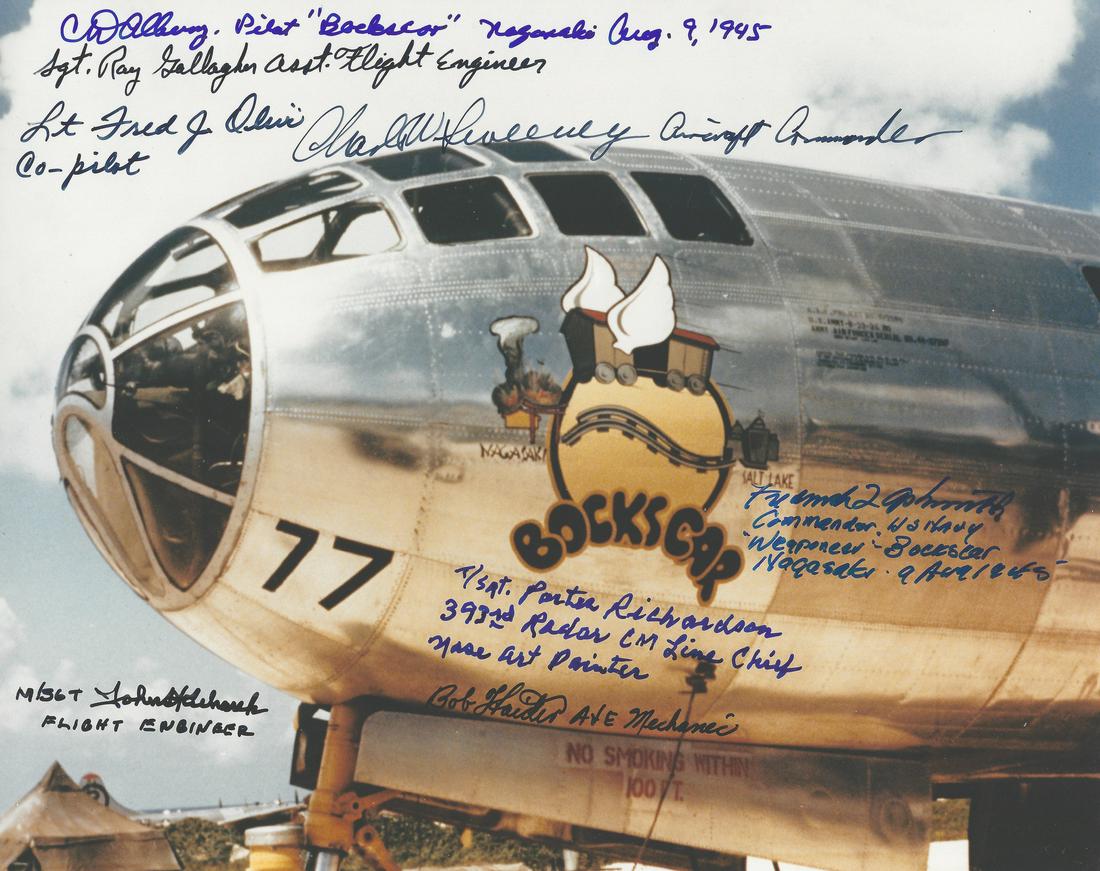 CD Albury. Pilot "Bockscar" Nagasaki Aug. 9, 1945
Sgt. Ray Gallagher Asst. Flight Engineer
Lt Fred J Olivi
Co-pilot
Charles W Sweeney Aircraft Commander
NAGASAKI
SALT LAKE
BOCKSCAR
77
Commander. US Navy
"Weaponeer" Bockscar
Nagasaki. 9 Aug 1945
T/Sgt. Porter Richardson
393rd Radar CM Line Chief
Nose Art Painter
M/SGT John D Kuharek
FLIGHT ENGINEER
Bob Haider A&E Mechanic
NO SMOKING WITHIN
100 FT.